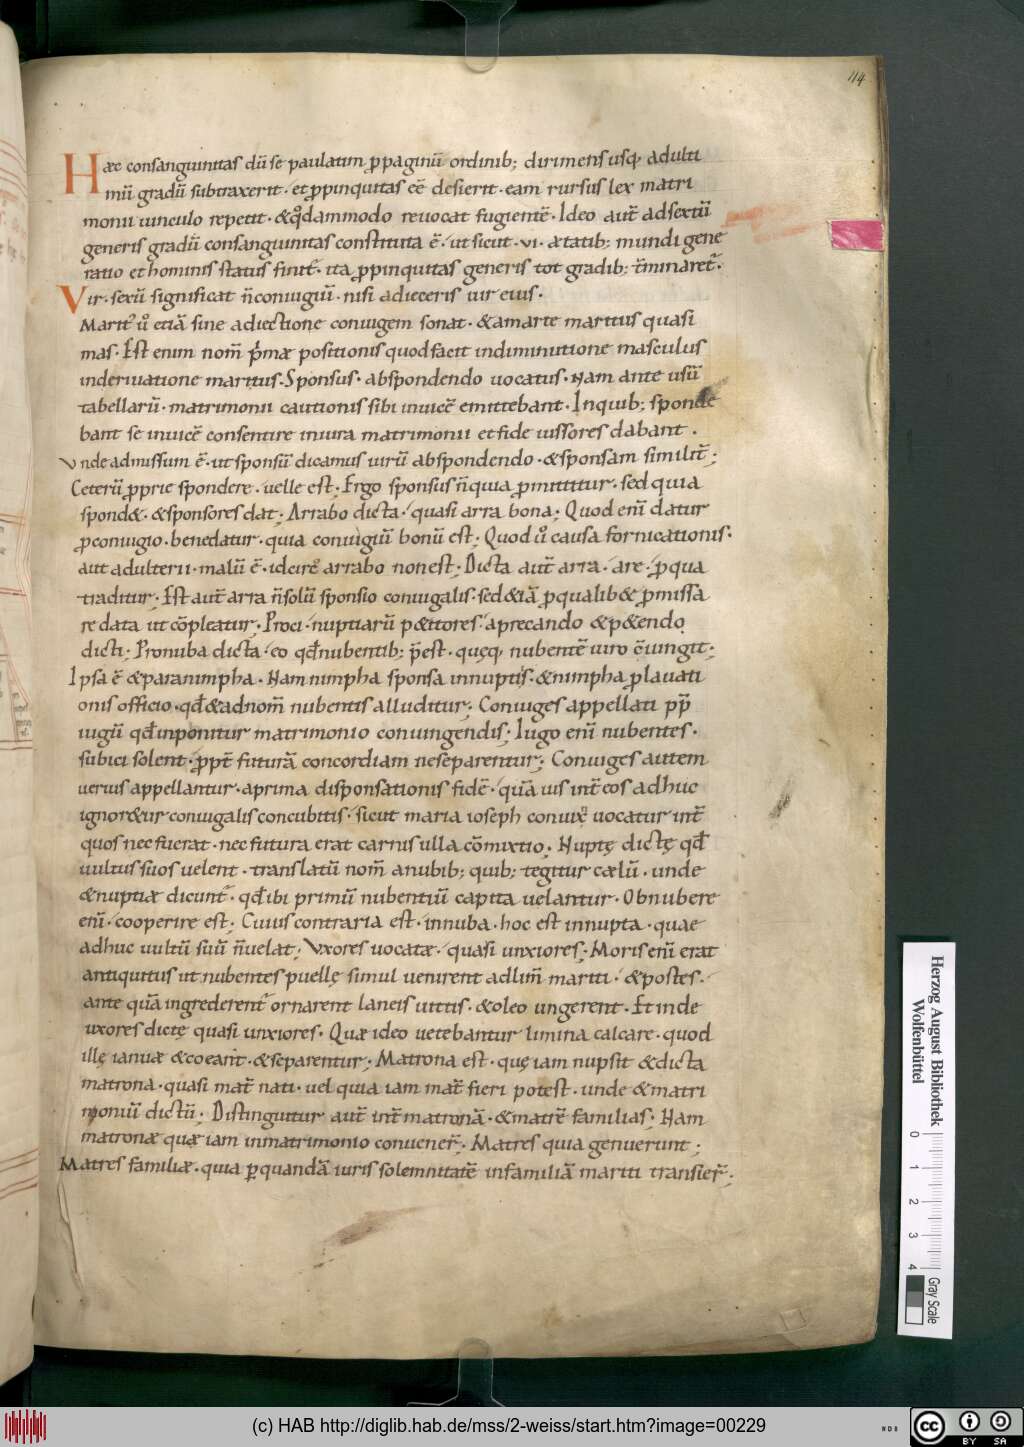 114
Hæc consanguinitas dū se paulatim ꝓpaginū ordinib; dirimens usq; ad ulti
mū gradū subtraxerit · et ꝓpinquitas eē desierit · eam rursus lex matri
monii uinculo repetit · & qͦdammodo reuocat fugientē · Ideo aut̄ ad sextū
generis gradū consanguinitas constituta ē · ut sicut · vi · ætatib; mundi gene
ratio et hominis status finit᷒ · ita ꝓpinquitas generis tot gradib; t̄minaret᷒ ·
Vir · sexū significat n̄ coniugiū · nisi adieceris uir eius ·
Marit᷒ uͦ etiā sine adiectione coniugem sonat · & a marte maritus quasi
mas · Est enim nom̄ p̄mæ positionis quod facit in diminutione masculus
in deriuatione maritus · Sponsus · ab spondendo uocatus · Nam ante usū
tabellarū · matrimonii cautionis sibi inuicē emittebant · In quib; sponde
bant se inuicē consentire in iura matrimonii et fide iussores dabant ·
Vnde admissum ē · ut sponsū dicamus uirū ab spondendo · & sponsam similit̄;
Ceterū ꝓprie spondere · uelle est; Ergo sponsus n̄ quia ꝓmittitur · sed quia
spond& · & sponsores dat; Arrabo dicta · quasi arra bona; Quod eni᷒ datur
ꝓ coniugio · bene datur · quia coniugiū bonū est; Quod uͦ causa fornicationis ·
aut adulterii · malū ē · idcirc̄ arrabo non est; Dicta aut̄ arra · a re · ꝓ qua
traditur; Est aut̄ arra n̄ solū sponsio coniugalis · sed & iā ꝓ qualib& ꝓmissa
re data ut cōpleatur; Proci · nuptiarū p&itores · a precando & p&endo
dicti; Pronuba dicta · eo qđ nubentib; p̄est · quęq; nubentē uiro c̄iungit;
Ipsa ē & paranimpha · Nam nimpha sponsa in nuptiis · & nimpha ꝓ lauati
onis officio · qđ & ad nom̄ nubentis alluditur; Coniuges appellati pp̄
iugū qđ inponitur matrimonio coniungendis; Iugo enī nubentes ·
subici solent · ꝓpt̄ futurā concordiam ne separentur; Coniuges autem
uerius appellantur · a prima disponsationis fidē · quā uis int̄ eos adhuc
ignor&ur coniugalis concubitus · sicut maria ioseph coniux̄ uocatur int̄
quos nec fuerat · nec futura erat carnis ulla cōmixtio; Nuptę dictę qđ
uultus suos uelent · translatū nom̄ a nubib; quib; tegitur cælū · unde
& nuptiæ dicunt᷒ · qđ ibi primū nubentiū capita uelantur · Obnubere
enī · cooperire est; Cuius contraria est · innuba · hoc est innupta · quae
adhuc uultū suū n̄ uelat; Vxores uocatæ · quasi unxiores; Moris enī erat
antiquitus ut nubentes puellę simul uenirent ad lim̄ mariti · & postes ·
ante quā ingrederent᷒ ornarent laneis uittis · & oleo ungerent · Et inde
uxores dictę quasi unxiores · Quæ ideo uetebantur limina calcare · quod
illę ianuæ & coeant · & separentur; Matrona est · quę iam nupsit & dicta
matrona · quasi mat̄ nati · uel quia iam mat̄ fieri potest · unde & matri
moniū dictū; Distinguitur aut̄ int̄ matronā · & matrē familias; Nam
matronæ quæ iam in matrimonio conuener̄; Matres quia genuerunt;
Matres familiæ · quia ꝑ quandā iuris solemnitatē in familiā mariti transier̄;
Herzog August Bibliothek
Wolfenbüttel
0 1 2 3 4
Gray Scale
(c) HAB http://diglib.hab.de/mss/2-weiss/start.htm?image=00229
cc BY SA